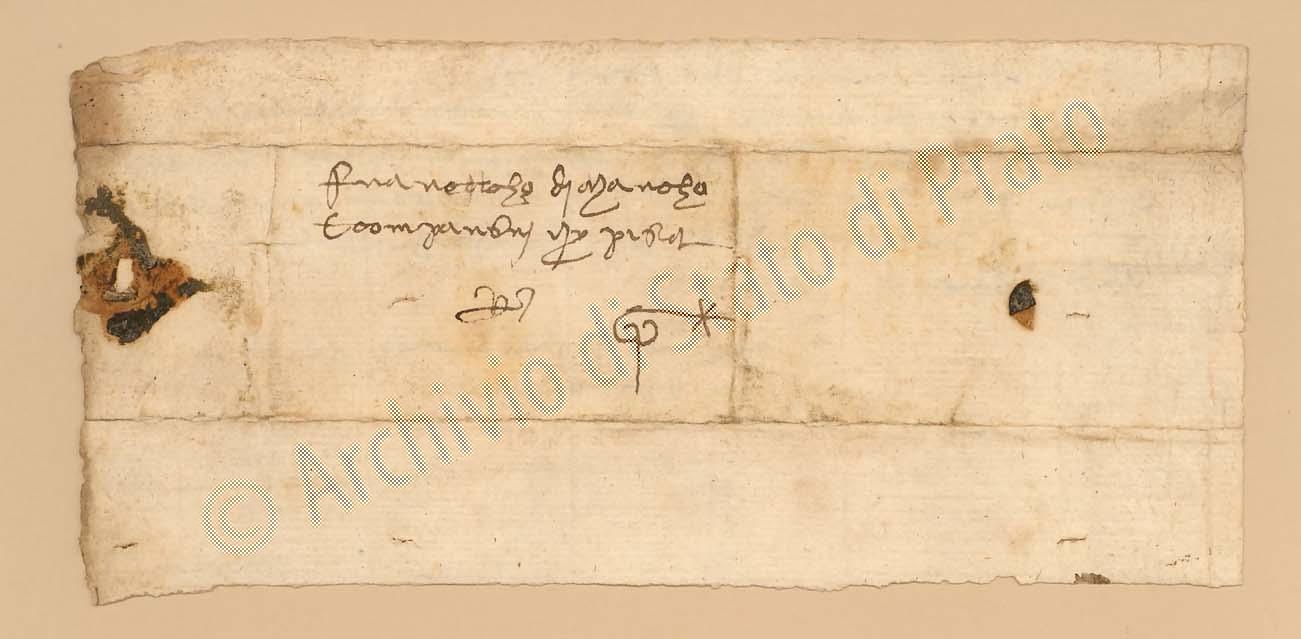 Francescho di Marcho
e compangni in pisa
© Archivio di Stato di Prato